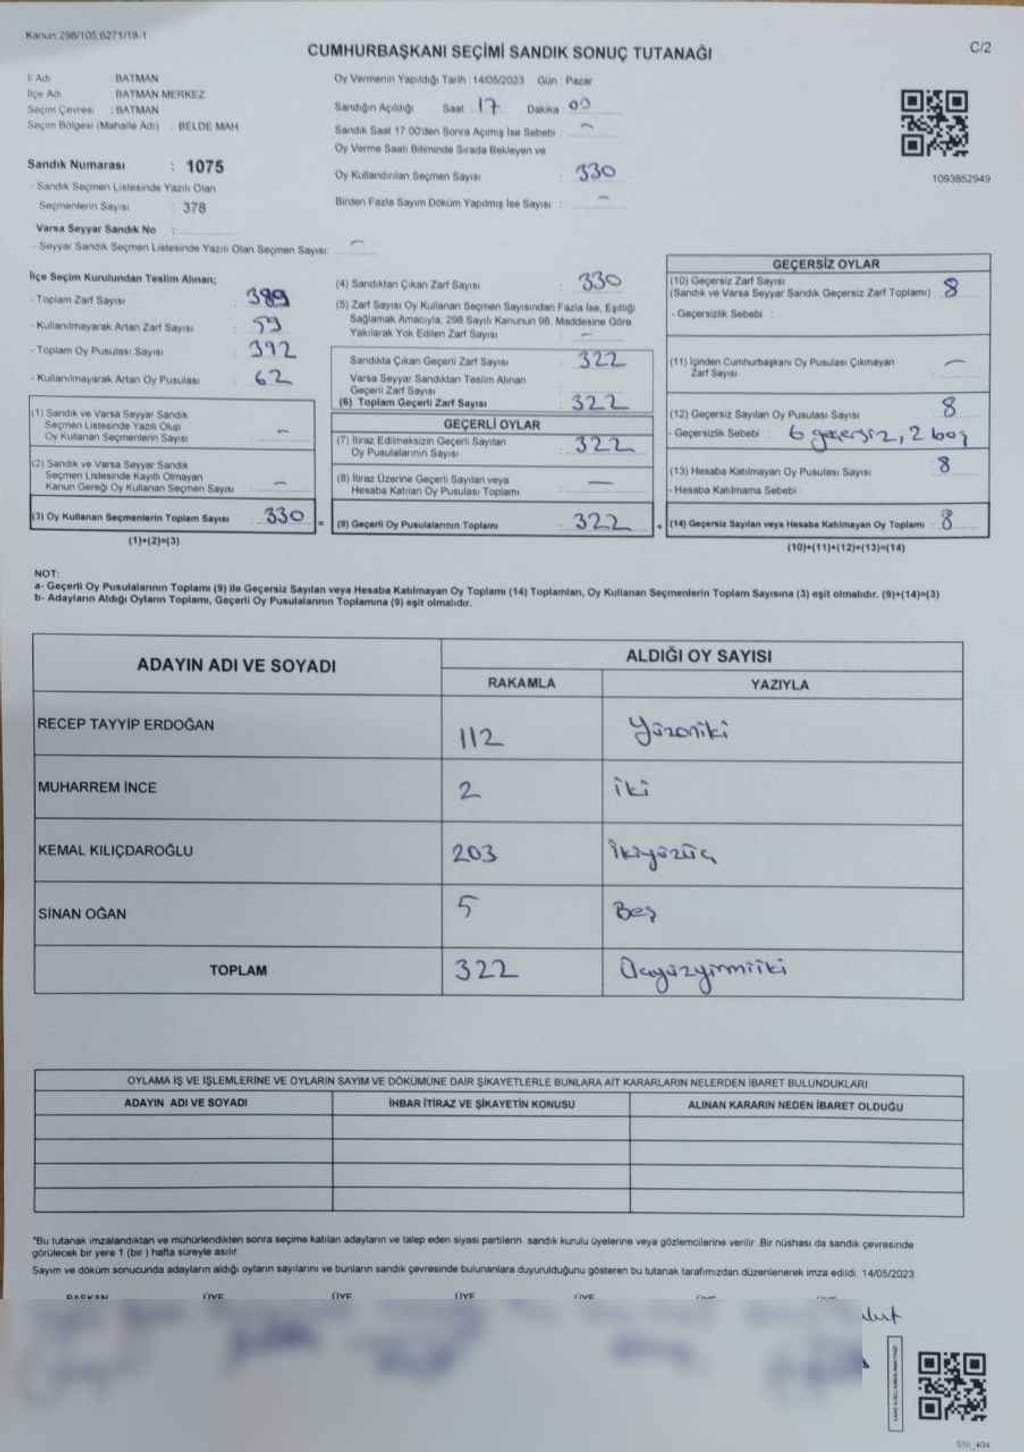 Kanun 298/105 6271/18-1
C/2
CUMHURBAŞKANI SEÇİMİ SANDIK SONUÇ TUTANAĞI
İl Adı : BATMAN
İlçe Adı : BATMAN MERKEZ
Seçim Çevresi : BATMAN
Seçim Bölgesi (Mahalle Adı) : BELDE MAH
Sandık Numarası : 1075
- Sandık Seçmen Listesinde Yazılı Olan
Seçmenlerin Sayısı : 378
Varsa Seyyar Sandık No :
- Seyyar Sandık Seçmen Listesinde Yazılı Olan Seçmen Sayısı: –
Oy Vermenin Yapıldığı Tarih : 14/05/2023 Gün : Pazar
Sandığın Açıldığı Saat : 17 Dakika : 00
Sandık Saat 17.00'den Sonra Açılmış İse Sebebi : –
Oy Verme Saati Bitiminde Sırada Bekleyen ve
Oy Kullandırılan Seçmen Sayısı : 330
Birden Fazla Sayım Döküm Yapılmış İse Sayısı : –
1093852949
İlçe Seçim Kurulundan Teslim Alınan;
- Toplam Zarf Sayısı : 389
- Kullanılmayarak Artan Zarf Sayısı : 59
- Toplam Oy Pusulası Sayısı : 392
- Kullanılmayarak Artan Oy Pusulası : 62
(1) Sandık ve Varsa Seyyar Sandık
Seçmen Listesinde Yazılı Olup
Oy Kullanan Seçmenlerin Sayısı : –
(2) Sandık ve Varsa Seyyar Sandık
Seçmen Listesinde Kayıtlı Olmayan
Kanun Gereği Oy Kullanan Seçmen Sayısı : –
(3) Oy Kullanan Seçmenlerin Toplam Sayısı : 330
(1)+(2)=(3)
(4) Sandıktan Çıkan Zarf Sayısı : 330
(5) Zarf Sayısı Oy Kullanan Seçmen Sayısından Fazla İse, Eşitliği
Sağlamak Amacıyla, 298 Sayılı Kanunun 98. Maddesine Göre
Yakılarak Yok Edilen Zarf Sayısı : –
Sandıkta Çıkan Geçerli Zarf Sayısı : 322
Varsa Seyyar Sandıktan Teslim Alınan
Geçerli Zarf Sayısı
(6) Toplam Geçerli Zarf Sayısı : 322
GEÇERLİ OYLAR
(7) İtiraz Edilmeksizin Geçerli Sayılan
Oy Pusulalarının Sayısı : 322
(8) İtiraz Üzerine Geçerli Sayılan veya
Hesaba Katılan Oy Pusulası Toplamı : –
= (9) Geçerli Oy Pusulalarının Toplamı : 322
GEÇERSİZ OYLAR
(10) Geçersiz Zarf Sayısı
(Sandık ve Varsa Seyyar Sandık Geçersiz Zarf Toplamı) : 8
- Geçersizlik Sebebi :
(11) İçinden Cumhurbaşkanı Oy Pusulası Çıkmayan
Zarf Sayısı –
(12) Geçersiz Sayılan Oy Pusulası Sayısı 8
- Geçersizlik Sebebi : 6 geçersiz, 2 boş
(13) Hesaba Katılmayan Oy Pusulası Sayısı 8
- Hesaba Katılmama Sebebi
+ (14) Geçersiz Sayılan veya Hesaba Katılmayan Oy Toplamı : 8
(10)+(11)+(12)+(13)=(14)
NOT:
a- Geçerli Oy Pusulalarının Toplamı (9) ile Geçersiz Sayılan veya Hesaba Katılmayan Oy Toplamı (14) Toplamları, Oy Kullanan Seçmenlerin Toplam Sayısına (3) eşit olmalıdır. (9)+(14)=(3)
b- Adayların Aldığı Oyların Toplamı, Geçerli Oy Pusulalarının Toplamına (9) eşit olmalıdır.
ADAYIN ADI VE SOYADI
ALDIĞI OY SAYISI
RAKAMLA YAZIYLA
RECEP TAYYİP ERDOĞAN 112 Yüzoniki
MUHARREM İNCE 2 iki
KEMAL KILIÇDAROĞLU 203 İkiyüzüç
SİNAN OĞAN 5 Beş
TOPLAM 322 Üçyüzyirmiiki
OYLAMA İŞ VE İŞLEMLERİNE VE OYLARIN SAYIM VE DÖKÜMÜNE DAİR ŞİKAYETLERLE BUNLARA AİT KARARLARIN NELERDEN İBARET BULUNDUKLARI
ADAYIN ADI VE SOYADI İHBAR İTİRAZ VE ŞİKAYETİN KONUSU ALINAN KARARIN NEDEN İBARET OLDUĞU
"Bu tutanak imzalandıktan ve mühürlendikten sonra seçime katılan adayların ve talep eden siyasi partilerin sandık kurulu üyelerine veya gözlemcilerine verilir. Bir nüshası da sandık çevresinde
görülecek bir yere 1 (bir ) hafta süreyle asılır.
Sayım ve döküm sonucunda adayların aldığı oyların sayılarını ve bunların sandık çevresinde bulunanlara duyurulduğunu gösteren bu tutanak tarafımızdan düzenlenerek imza edildi. 14/05/2023
BAŞKAN ÜYE ÜYE ÜYE ÜYE